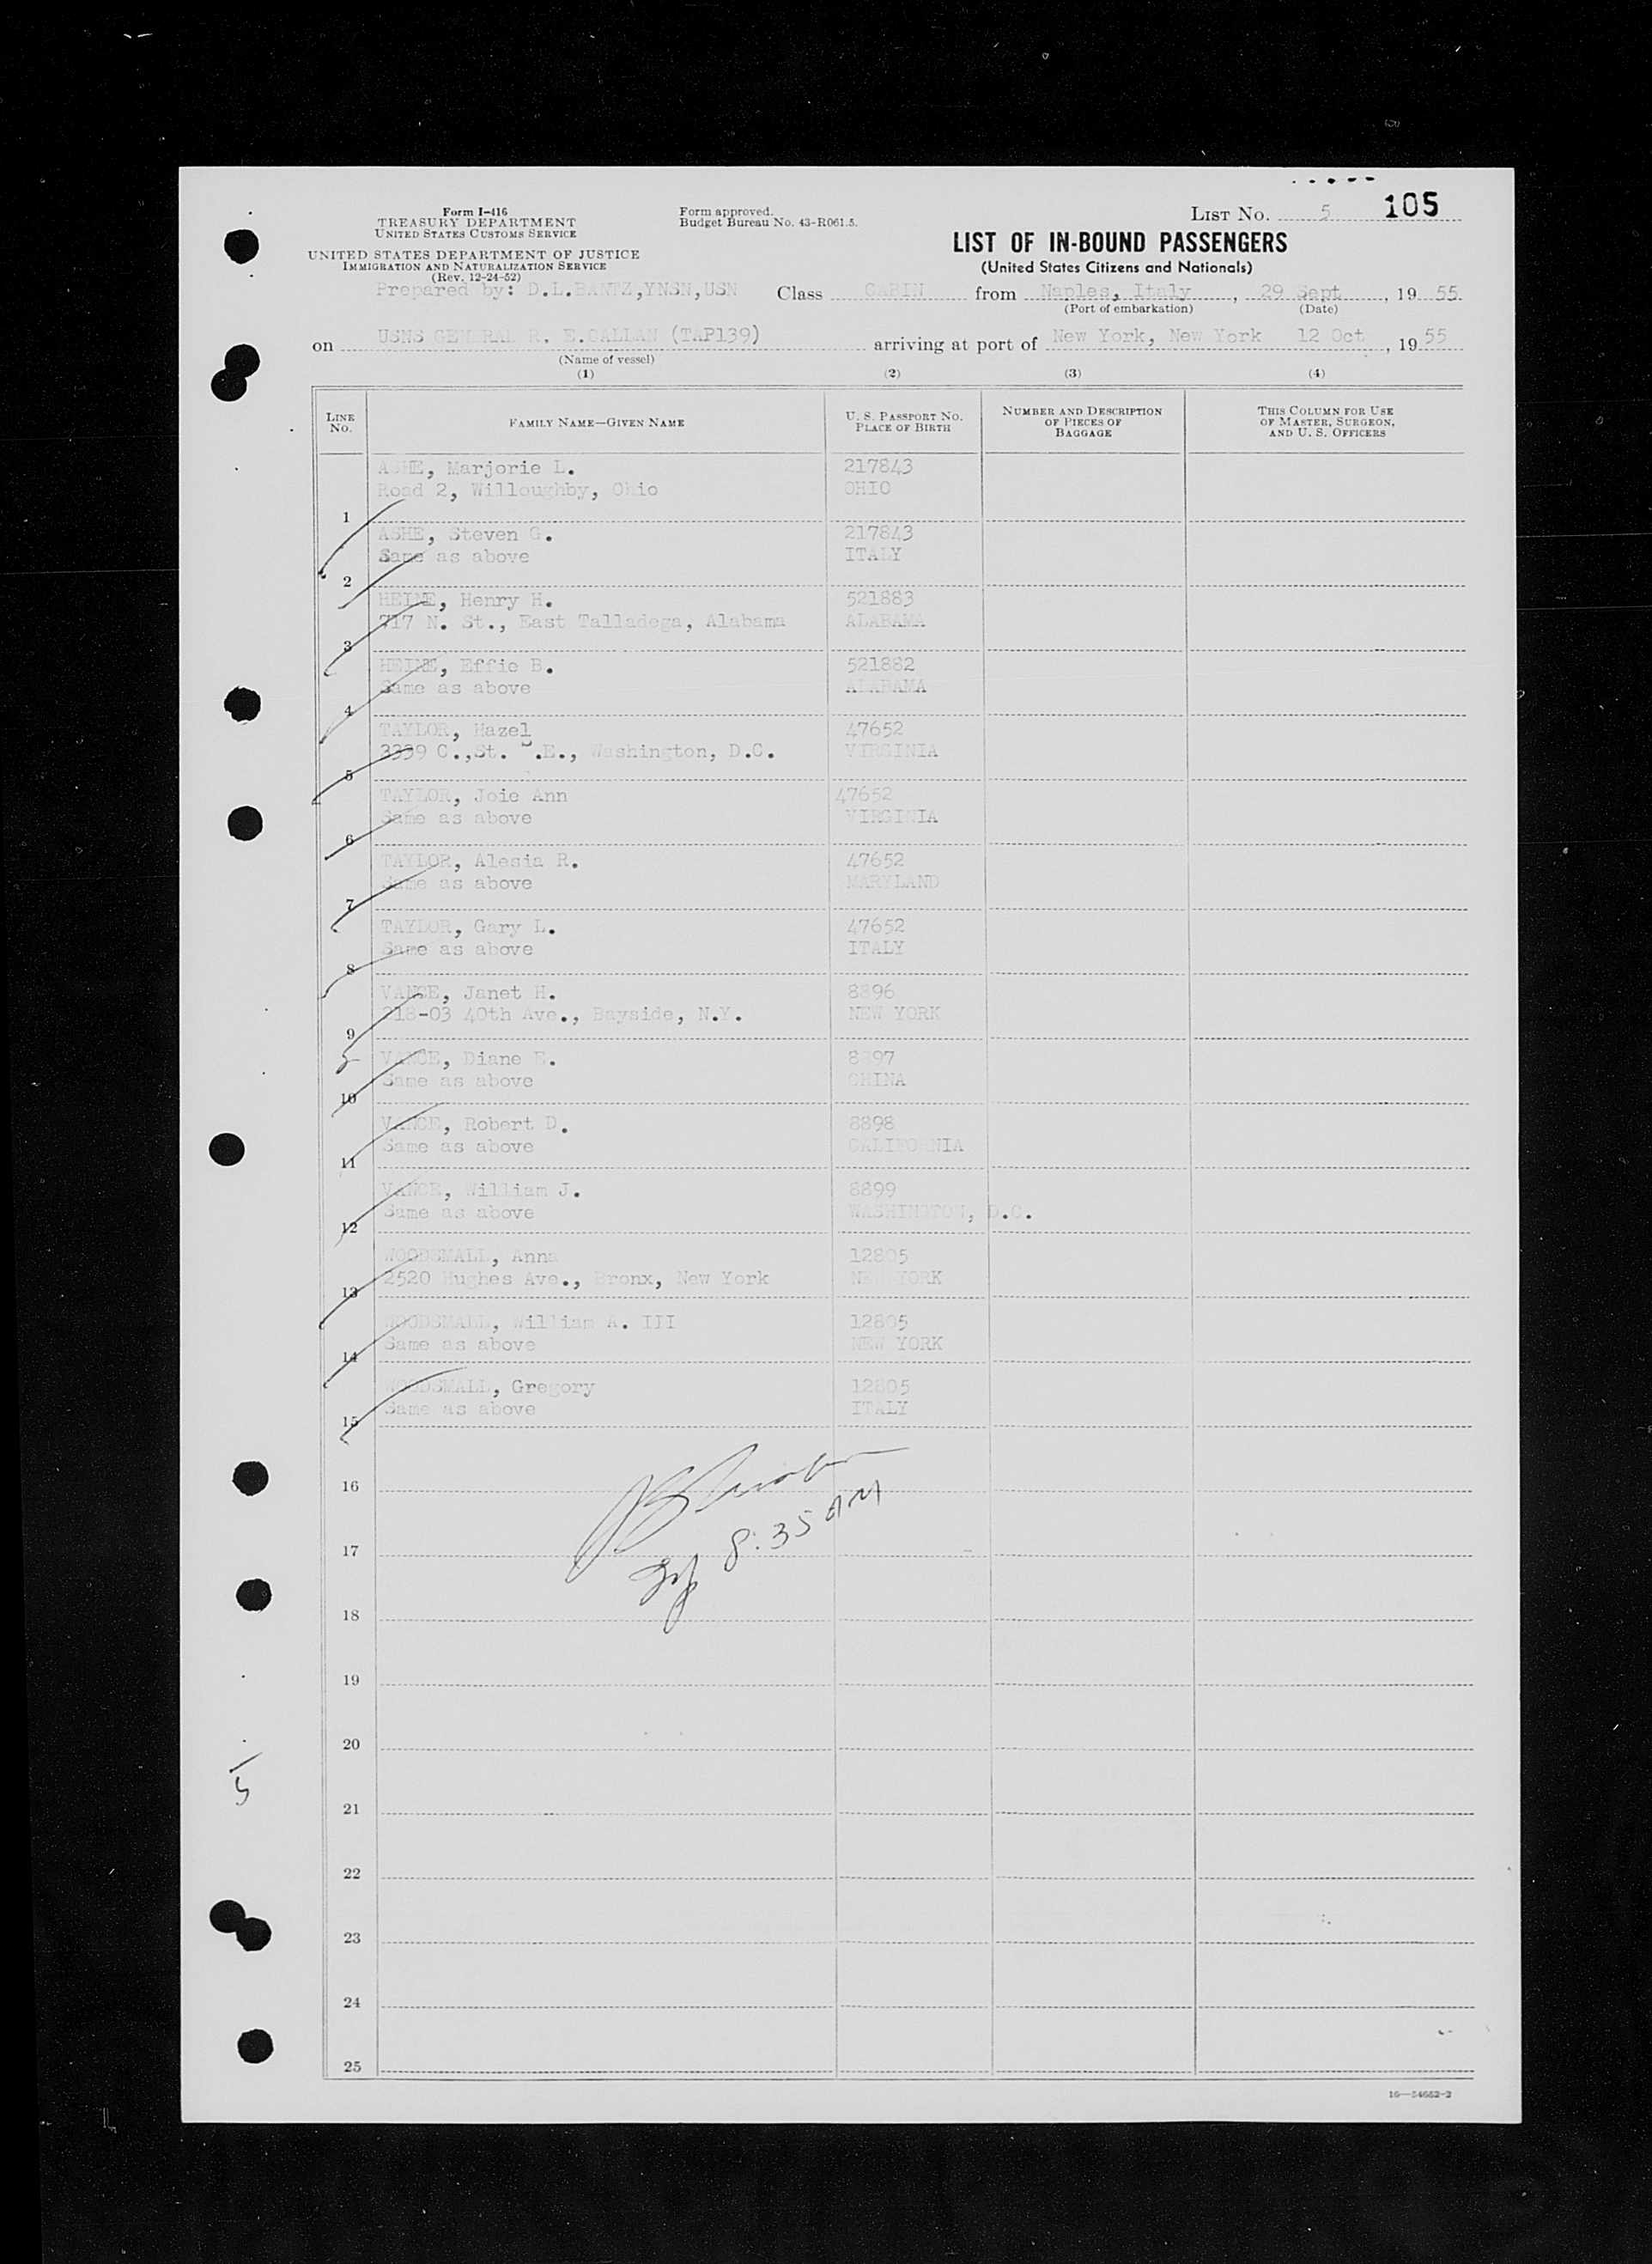 Form I-416
TREASURY DEPARTMENT
UNITED STATES CUSTOMS SERVICE
UNITED STATES DEPARTMENT OF JUSTICE
IMMIGRATION AND NATURALIZATION SERVICE
(Rev. 12-24-52)
Form approved.
Budget Bureau No. 43-R061.5.
LIST NO. 5 105
LIST OF IN-BOUND PASSENGERS
(United States Citizens and Nationals)
Prepared by: D.L.BANTZ,YNSN,USN Class CABIN from Naples, Italy, 29 Sept, 1955
(Port of embarkation) (Date)
on USNS GENERAL R. E.CALLAN (TAP139) arriving at port of New York, New York 12 Oct, 1955
(Name of vessel)
(1) (2) (3) (4)
LINE NO. FAMILY NAME—GIVEN NAME U. S. PASSPORT NO. PLACE OF BIRTH NUMBER AND DESCRIPTION OF PIECES OF BAGGAGE THIS COLUMN FOR USE OF MASTER, SURGEON, AND U. S. OFFICERS
ASHE, Marjorie L. 217843
Road 2, Willoughby, Ohio OHIO
1
ASHE, Steven G. 217843
Same as above ITALY
2
HEINE, Henry H. 521883
717 N. St., East Talladega, Alabama ALABAMA
3
HEINE, Effie B. 521882
Same as above ALABAMA
4
TAYLOR, Hazel 47652
3339 C.,St. .E., Washington, D.C. VIRGINIA
5
TAYLOR, Joie Ann 47652
Same as above VIRGINIA
6
TAYLOR, Alesia R. 47652
Same as above MARYLAND
7
TAYLOR, Gary L. 47652
Same as above ITALY
8
VANCE, Janet H. 8896
218-03 40th Ave., Bayside, N.Y. NEW YORK
9
VANCE, Diane E. 8897
Same as above CHINA
10
VANCE, Robert D. 8898
Same as above CALIFORNIA
11
VANCE, William J. 8899
Same as above WASHINGTON, D.C.
12
WOODSMALL, Anna 12805
2520 Hughes Ave., Bronx, New York NEW YORK
13
WOODSMALL, William A. III 12805
Same as above NEW YORK
14
WOODSMALL, Gregory 12805
Same as above ITALY
15
16
8:35 AM
17
18
19
20
5
21
22
23
24
25
16—54652-2